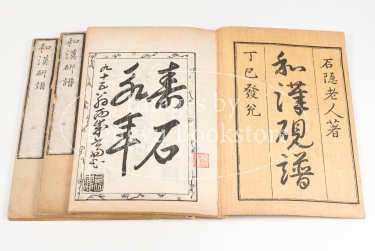 和漢硯譜
和漢硯譜
石隠老人著
和漢硯譜
丁巳發兌
壽石
永年
九十五翁
Images by
Bookstore